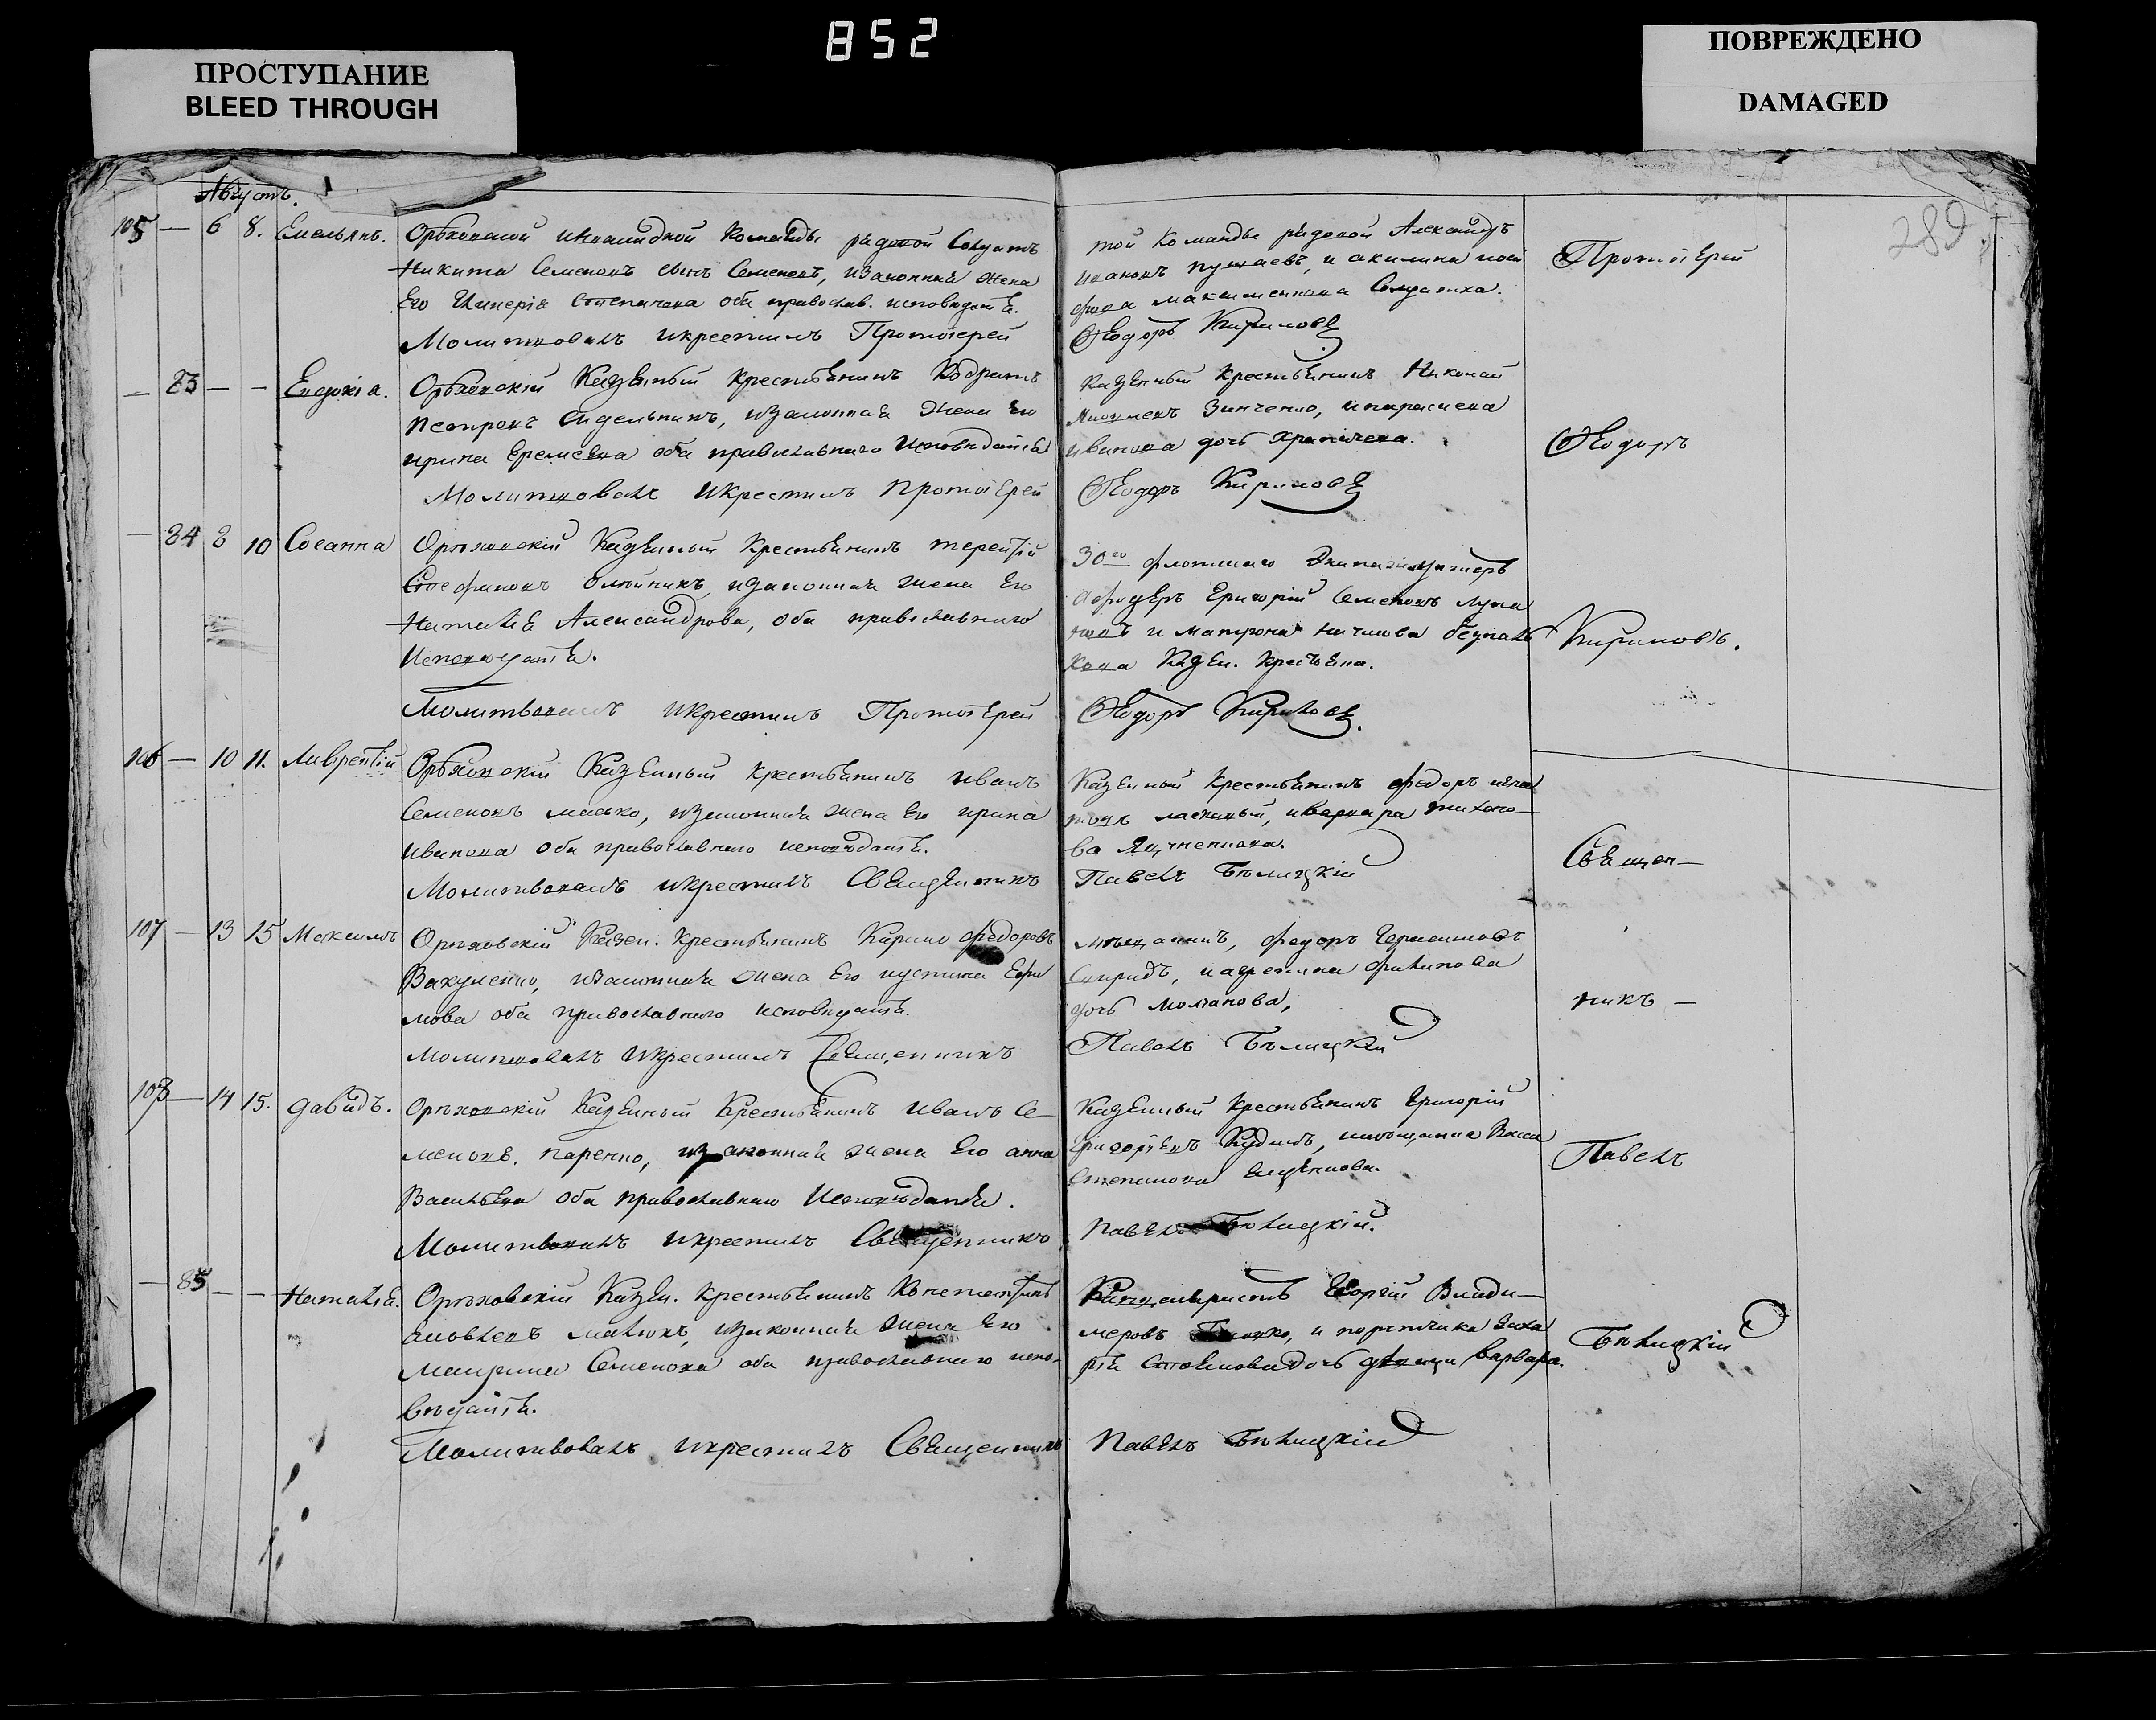 852
ПРОСТУПАНИЕ
BLEED THROUGH
ПОВРЕЖДЕНО
DAMAGED
289
Августъ.
105 — 6 8. Емельянъ.
Орѣховской инвалидной команды рядовой Солдатъ
Никита Семеновъ сынъ Семеновъ, изаконная жена
Его Гликерія Степанова оба православ. исповеданія.
Молитвовалъ икрестилъ Протоіерей
той команды рядовой Александръ
Ивановъ, и акилина
Солдатиха.
Ѳеодоръ Кириловъ
Протоіерей
— 83 — — Евдокіа.
Орѣховскій Казенный крестьянинъ Кодратъ
Петровъ Сидельникъ, изаконная жена Его
ирина Еремеева оба православнаго исповеданія
Молитвовалъ икрестилъ протоіерей
Казенный крестьянинъ Николай
Зинченко, ипараскева
иванова дочь
Ѳеодоръ Кириловъ
Ѳеодоръ
— 84 8 10 Сосанна
Орѣховскій Казенный Крестьянинъ терентій
Стефановъ олѣйникъ, изаконная жена Его
Наталія Александрова, оба православнаго
Исповеданія.
Молитвовалъ икрестилъ Протоіерей
30го флотскаго Экипажа
Григорій Семеновъ
и матрона
Казен. крестьяна.
Ѳеодоръ Кириловъ.
Кириловъ.
106 — 10 11. Лаврентій
Орѣховскій Казенный крестьянинъ иванъ
Семеновъ масько, изаконная жена Его ирина
Иванова оба православнаго исповѣданія.
Молитвовалъ икрестилъ Священникъ
Казенный крестьянинъ федоръ
иварвара тихоно—
ва
Павелъ Бѣлицкій
Священ—
107 — 13 15 Максимъ
Орѣховскій Казен. крестьянинъ Карпо федоровъ
Вакуленко, изаконная жена Его иустина Ефи
мова оба православнаго исповедания.
Молитвовалъ икрестилъ Священникъ
мѣщанинъ, федоръ Герасимовъ
филипова
дочь Молчанова,
Павелъ Бѣлицкій
никъ —
108 — 14 15. Давидъ.
Орѣховскій Казенный Крестьянинъ иванъ Се—
меновъ. паренко, изаконная жена Его анна
Васильева оба православнаго Исповѣданія.
Молитвовалъ икрестилъ Священникъ
Казенный крестьянинъ Григорій
Григорьевъ, имѣщанка Васса
Степанова
Павелъ Бѣлицкій.
Павелъ
— 85 — — Наталія.
Орѣховскій Казен. крестьянинъ Константинъ
изаконная жена Его
Семенова оба православнаго испо-
вѣданія.
Молитвовалъ икрестилъ Священникъ
Канцеляристъ Георгій Влади—
меровъ, и поручика Заха
рія дочь девица варвара.
Павелъ Бѣлицкій
Бѣлицкій